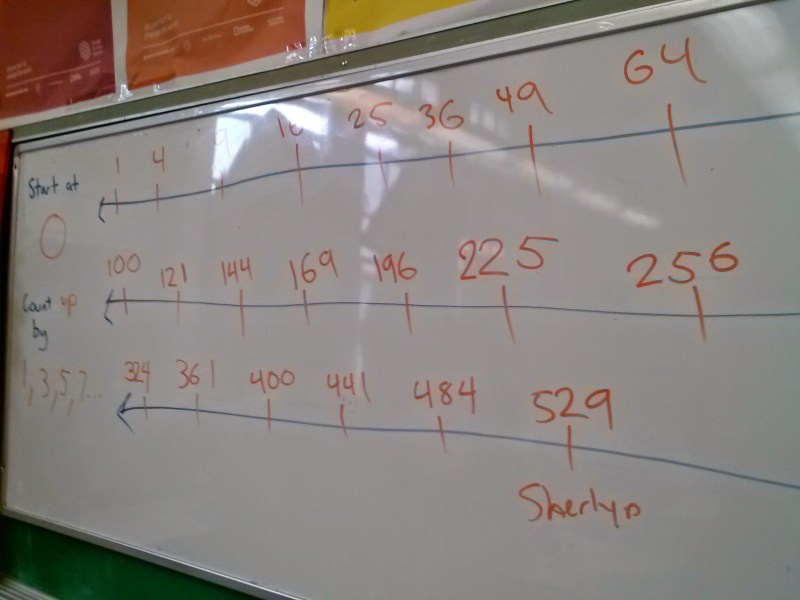 1 4 9 16 25 36 49 64
Start at
0
100 121 144 169 196 225 256
Count up
by
1, 3, 5, 7...
324 361 400 441 484 529
Sherlyn